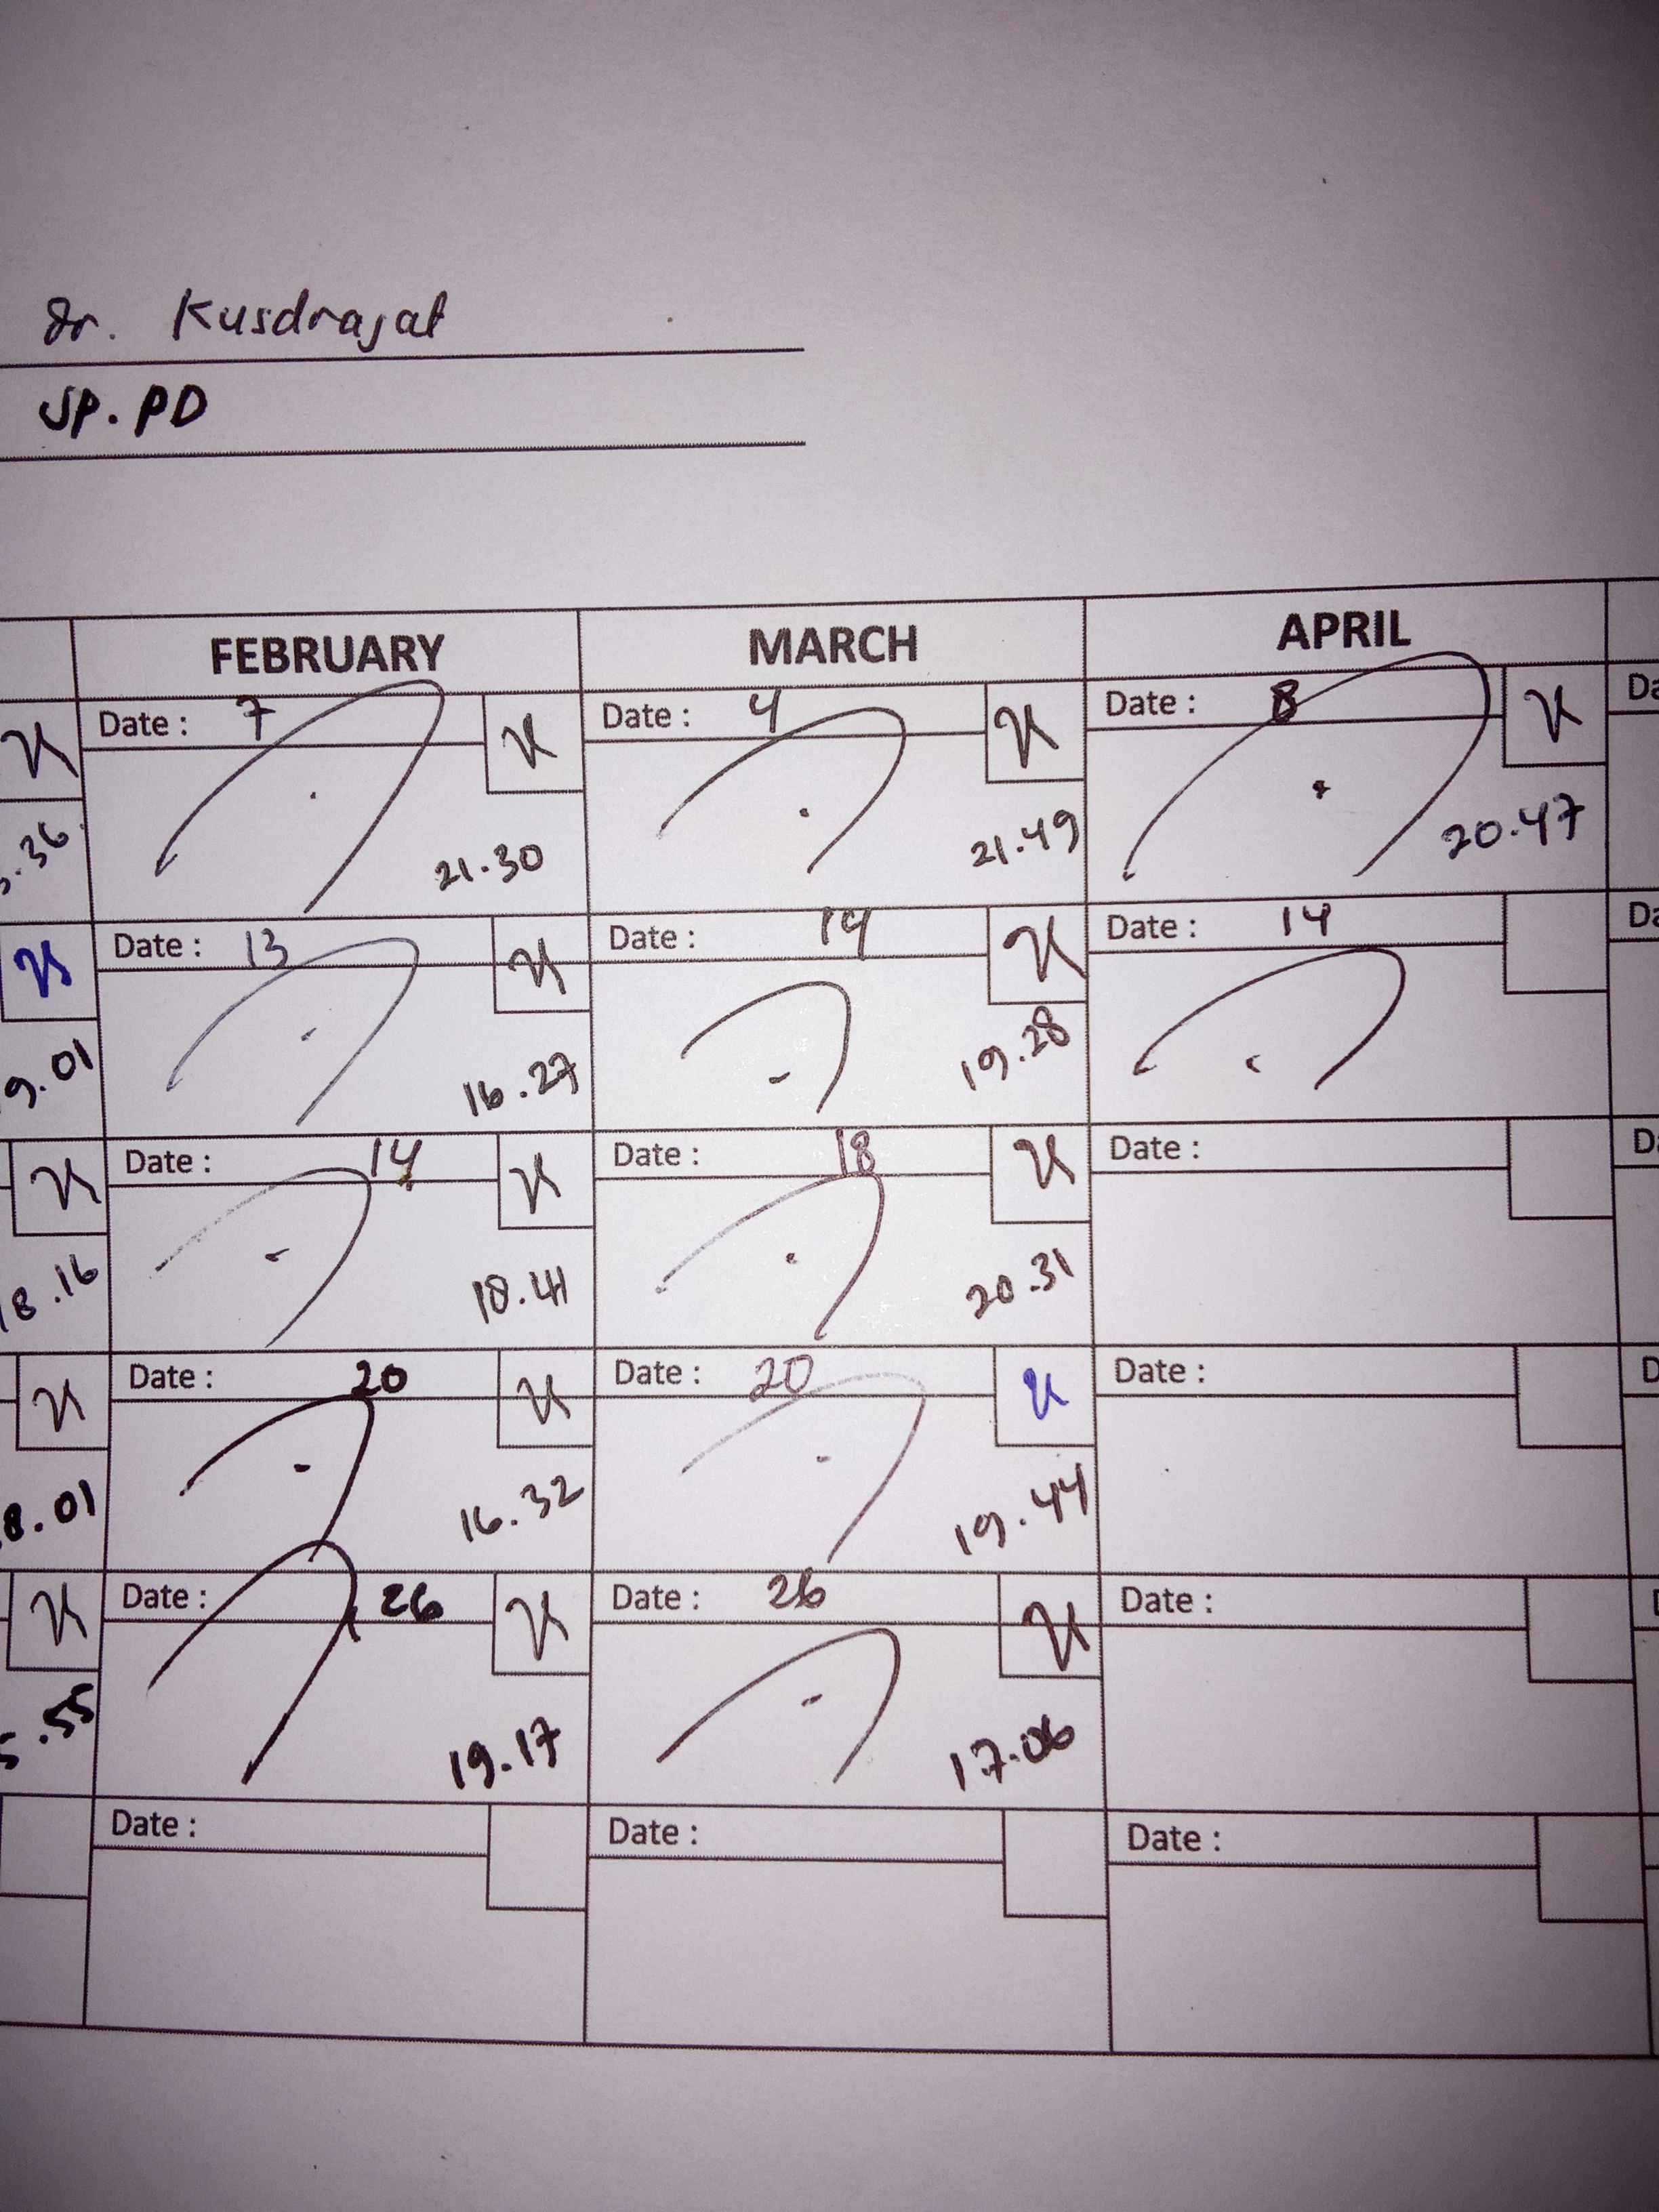 dr. Kusdrajat
SP. PD
FEBRUARY MARCH APRIL
Date : 7 Date : 4 Date : 8
21.30 21.49 20.47
Date : 13 Date : 14 Date : 14
9.01 16.27 19.28
Date : 14 Date : 18 Date :
8.16 18.41 20.31
Date : 20 Date : 20 Date :
8.01 16.32 19.44
Date : 26 Date : 26 Date :
5.55 19.17 17.06
Date : Date : Date :